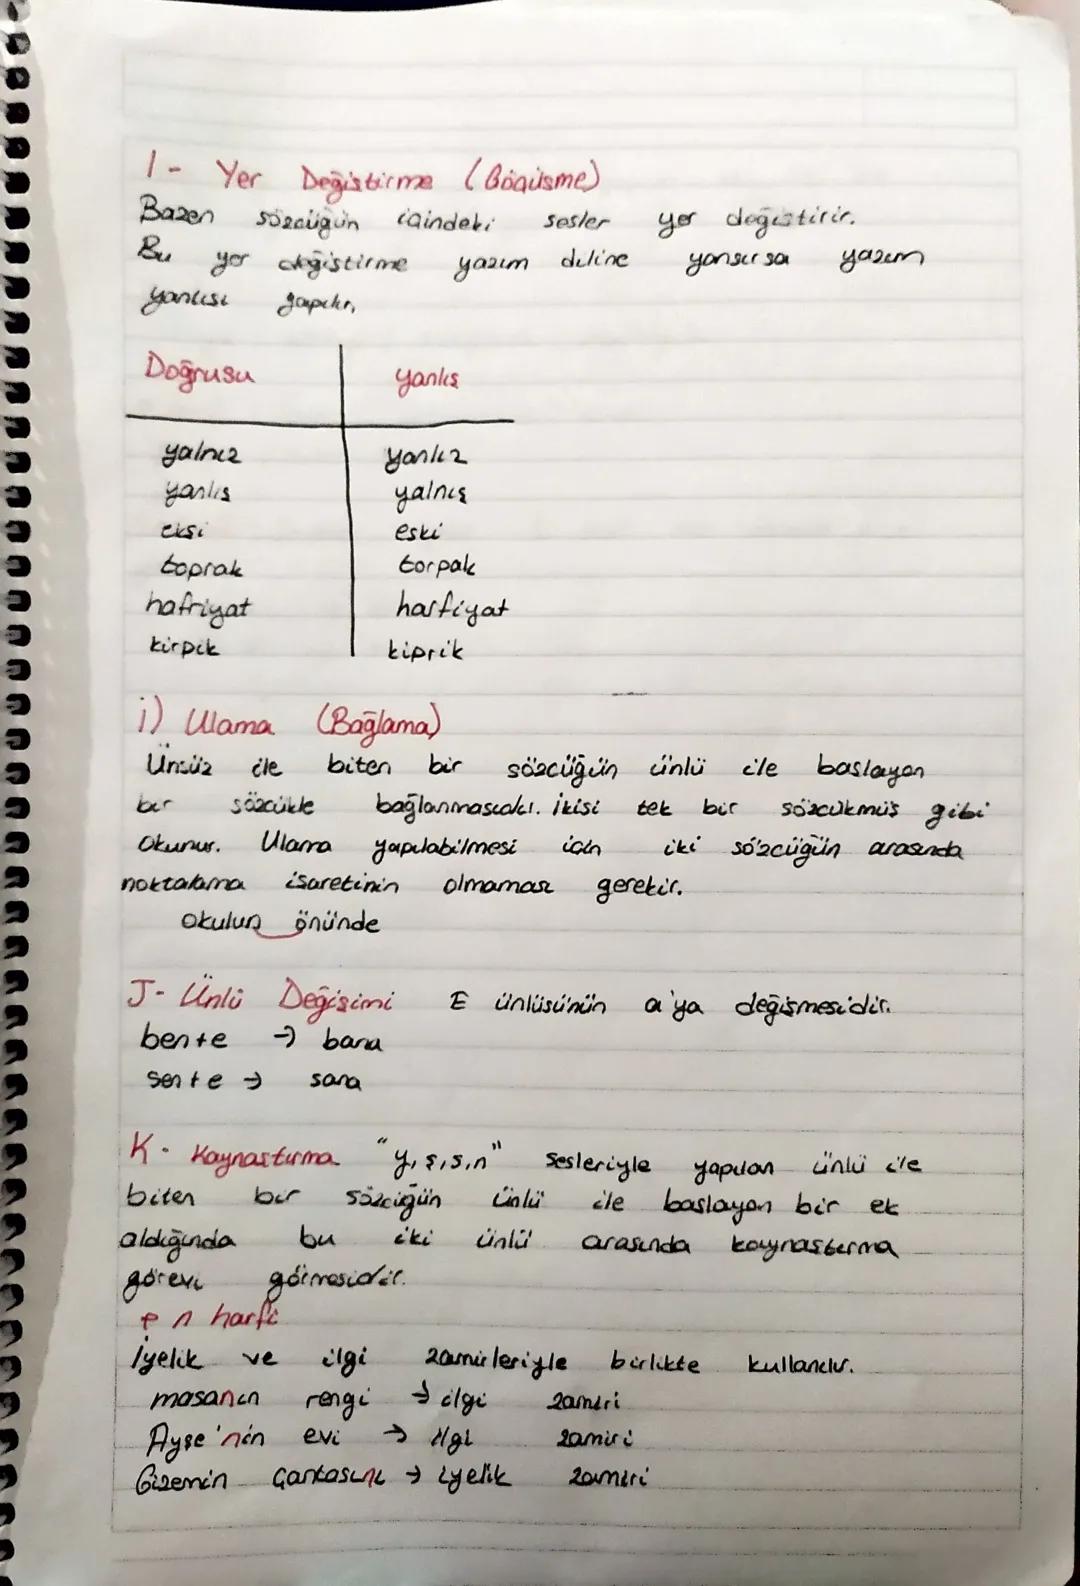 I- Yer Değiştirme (Göçüşme)
Bazen sözcüğün içindeki sesler yer değiştirir.
Bu yer değiştirme yazım diline yansırsa yazım
yanlışı yapılır.
Doğrusu yanlış
yalnız yanlız
yanlış yalnış
ekşi eşki
toprak torpak
hafriyat harfiyat
kirpik kiprik
i) Ulama (Bağlama)
Ünsüz ile biten bir sözcüğün ünlü ile başlayan
bir sözcükle bağlanmasıdır. İkisi tek bir sözcükmüş gibi
okunur. Ulama yapılabilmesi için iki sözcüğün arasında
noktalama işaretinin olmaması gerekir.
okulun önünde
J- Ünlü Değişimi E ünlüsünün a'ya değişmesidir.
ben+e → bana
sen+e → sana
K- Kaynaştırma "y,ş,s,n" sesleriyle yapılan ünlü ile
biten bir sözcüğün ünlü ile başlayan bir ek
aldığında bu iki ünlü arasında kaynaştırma
görevi görmesidir.
n harfi
İyelik ve ilgi zamirleriyle birlikte kullanılır.
masanın rengi → ilgi zamiri
Ayşe'nin evi → ilgi zamiri
Gizemin çantasını → iyelik zamiri